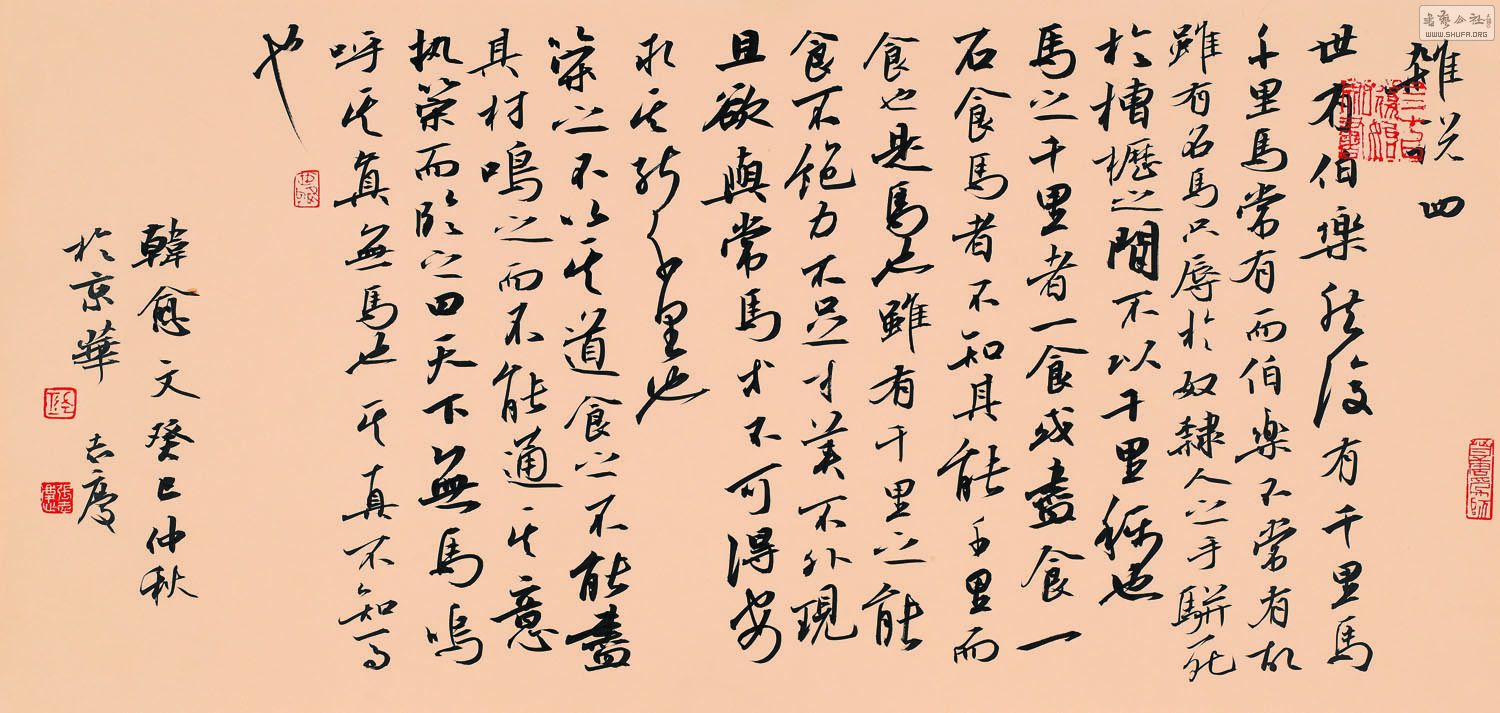 雜說四
世有伯樂然後有千里馬
千里馬常有而伯樂不常有故
雖有名馬只辱於奴隸人之手駢死
於槽櫪之間不以千里稱也
馬之千里者一食或盡食一
石食馬者不知其能千里而
食也是馬也雖有千里之能
食不飽力不足才美不外現
且欲與常馬等不可得安
求其能千里也
策之不以其道食之不能盡
其材鳴之而不能通其意
执策而臨之曰天下無馬嗚
呼其真無馬也其真不知馬
也
韓愈文癸巳仲秋
於京華 志慶
書藝公社
WWW.SHUFA.ORG